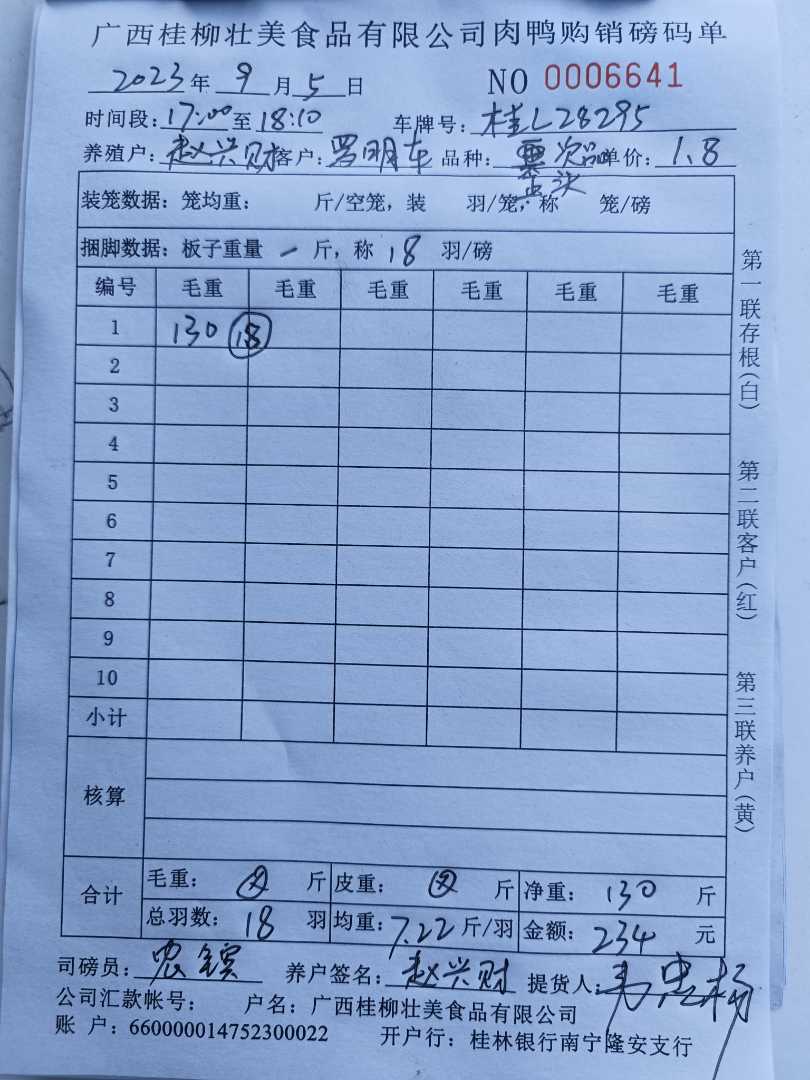 广西桂柳壮美食品有限公司肉鸭购销磅码单
2023年9月5日 NO 0006641
时间段:17:00至18:10 车牌号:桂L28295
养殖户:赵兴财客户:罗明车 品种:次品单价:1.8
装笼数据:笼均重: 斤/空笼,装 羽/笼,称 笼/磅
捆脚数据:板子重量 一 斤,称 18 羽/磅
编号 毛重 毛重 毛重 毛重 毛重 毛重
1 130 18
2
3
4
5
6
7
8
9
10
小计
核算
合计 毛重: 斤 皮重: 斤 净重: 130 斤
总羽数: 18 羽 均重: 7.22 斤/羽 金额: 234 元
司磅员: 养户签名: 赵兴财 提货人:
公司汇款帐号: 户名:广西桂柳壮美食品有限公司
账 户:660000014752300022 开户行:桂林银行南宁隆安支行
第一联存根(白) 第二联客户(红) 第三联养户(黄)